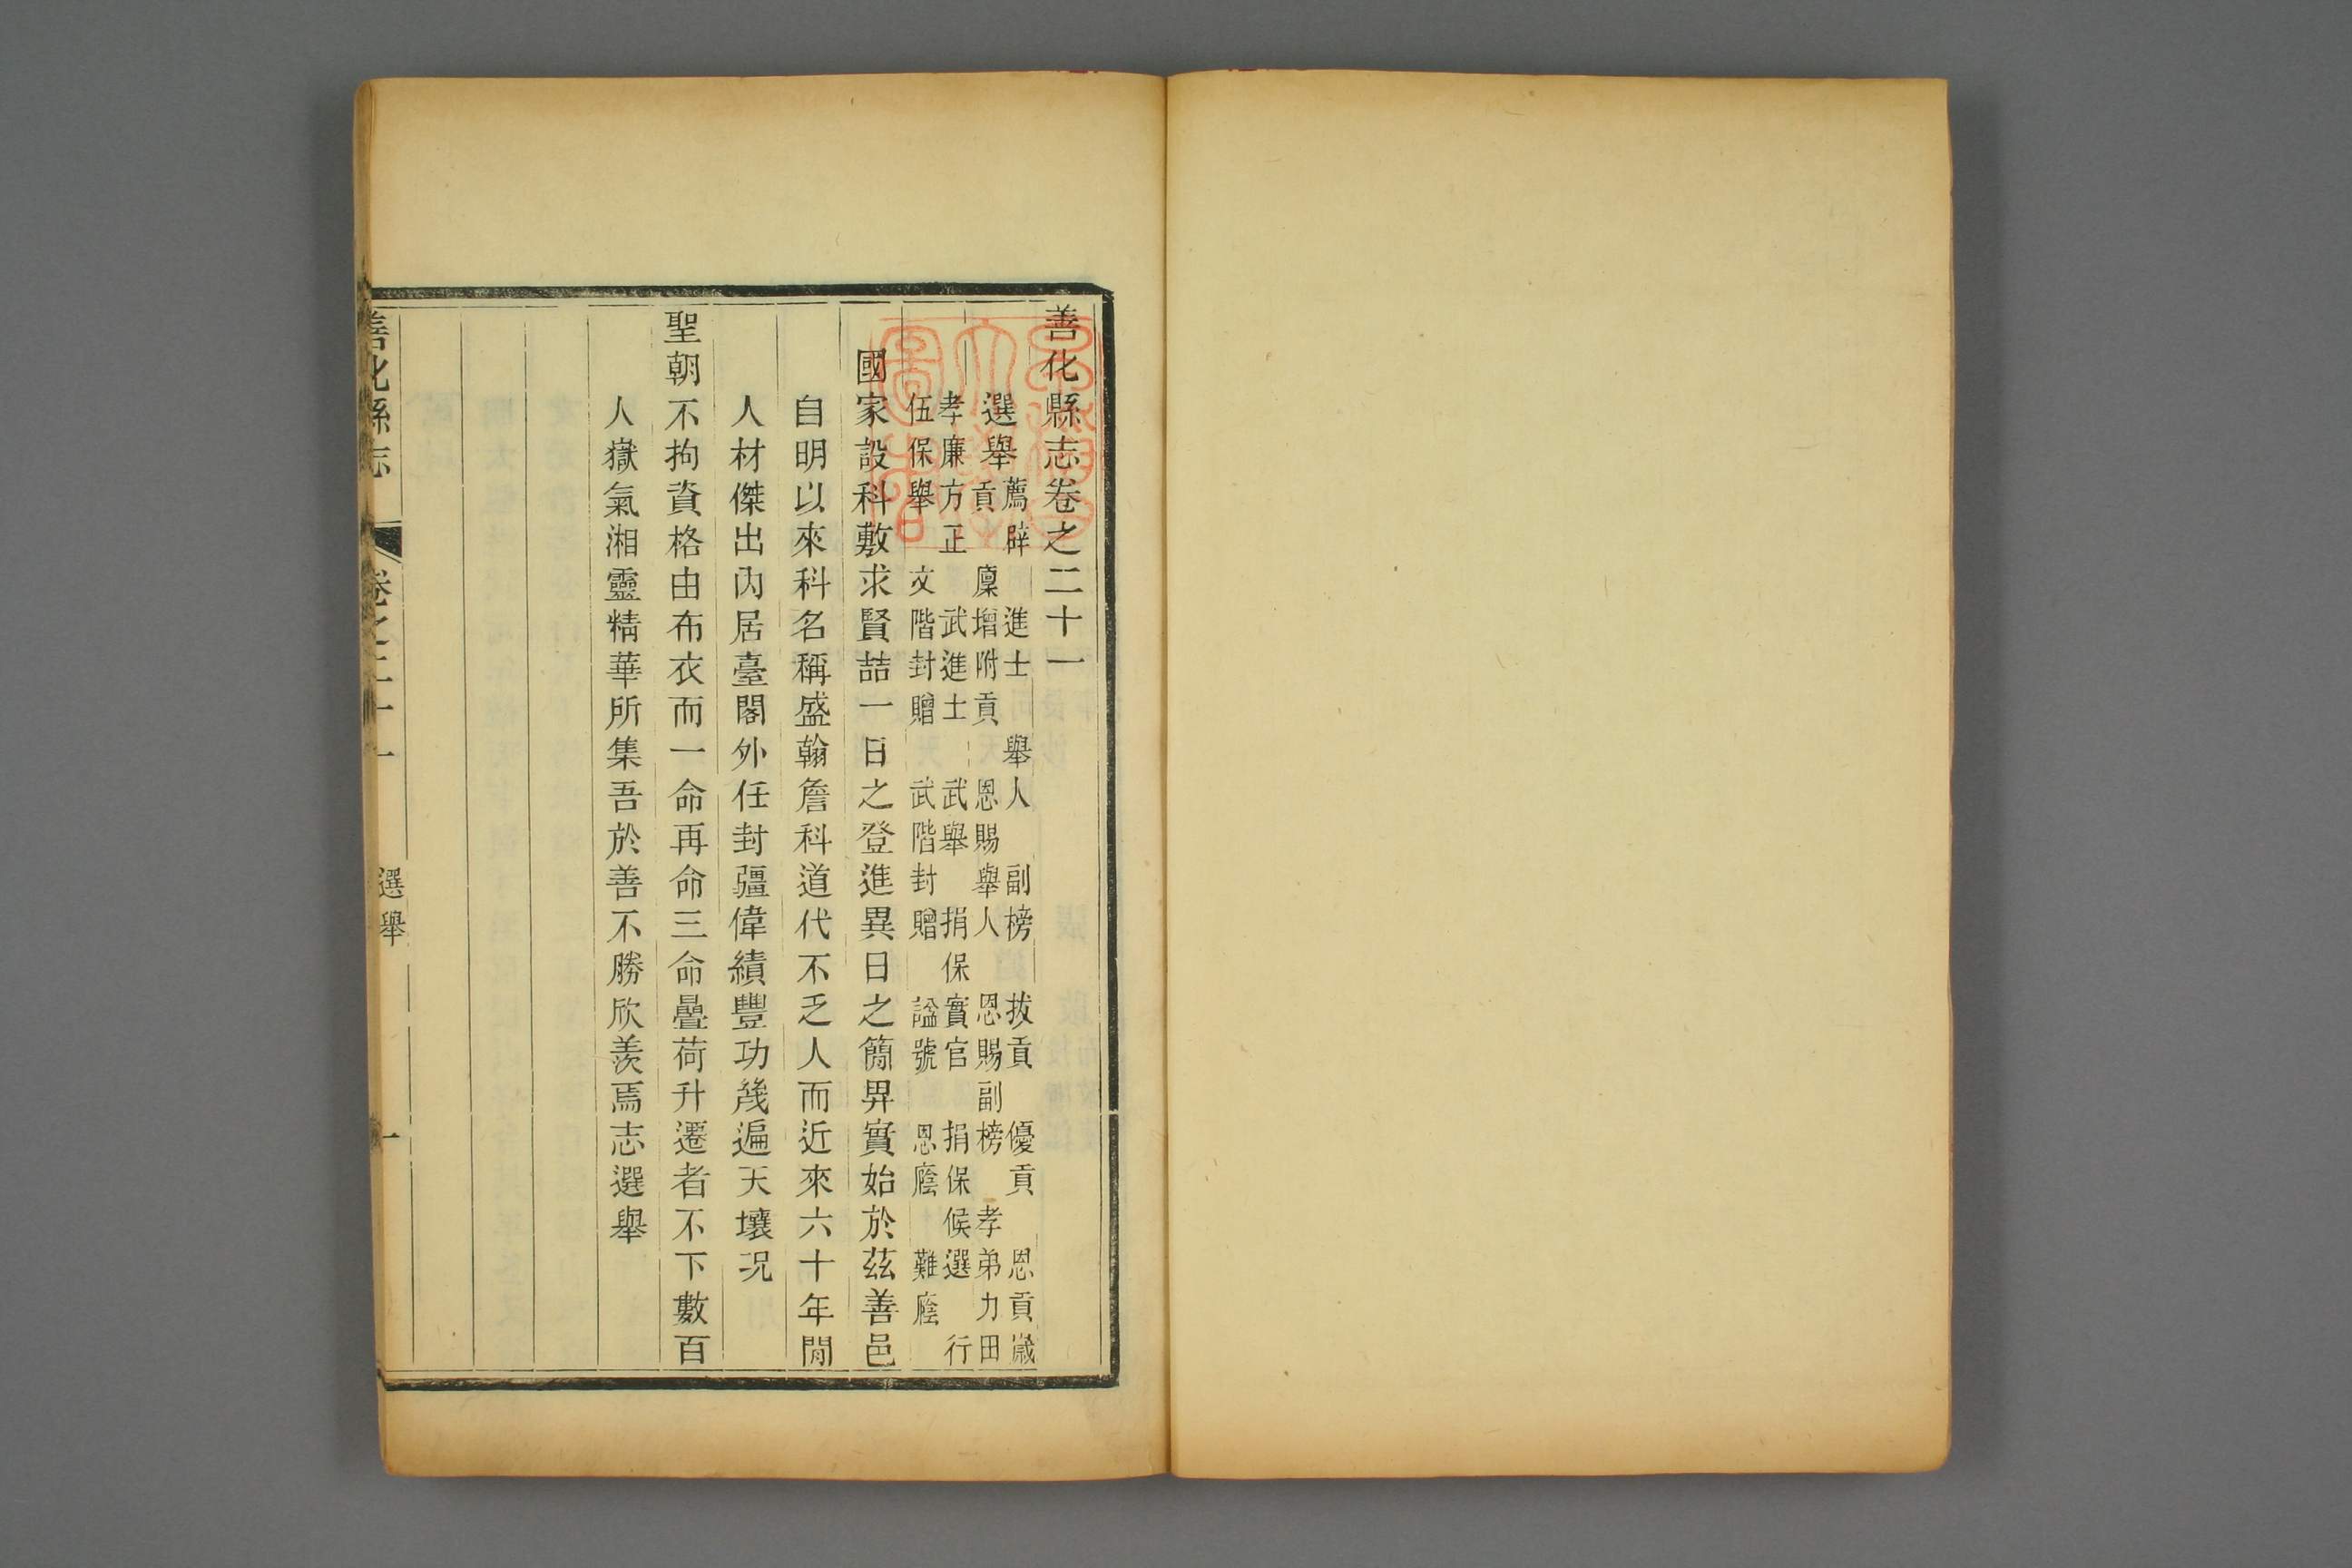 善化縣志卷之二十一
選舉
薦辟 進士 舉人 副榜 拔貢 優貢 恩貢 歲
貢 廩增附貢 恩賜舉人 恩賜副榜 孝弟力田
孝廉方正 武進士 武舉 捐保實官 捐保候選 行
伍保舉 文階封贈 武階封贈 諡號 恩廕 難廕
國家設科敷求賢喆一日之登進異日之簡畀實始於茲善邑
自明以來科名稱盛翰詹科道代不乏人而近來六十年閒
人材傑出內居臺閣外任封疆偉績豐功幾遍天壤况
聖朝不拘資格由布衣而一命再命三命疊荷升遷者不下數百
人嶽氣湘靈精華所集吾於善不勝欣羨焉志選舉
善化縣志
卷之二十一
選舉
一